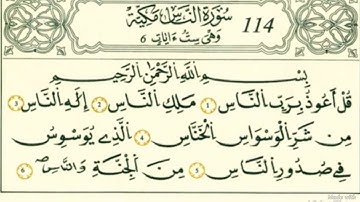 سُورَةُ النَّاسِ مَكِّيَّة
114
وَهِيَ سِتُّ ءَايَاتٍ 6
بِسْمِ اللَّهِ الرَّحْمَٰنِ الرَّحِيمِ
قُلْ أَعُوذُ بِرَبِّ النَّاسِ 1 مَلِكِ النَّاسِ 2 إِلَٰهِ النَّاسِ 3
مِن شَرِّ الْوَسْوَاسِ الْخَنَّاسِ 4 الَّذِي يُوَسْوِسُ
فِي صُدُورِ النَّاسِ 5 مِنَ الْجِنَّةِ وَالنَّاسِ 6